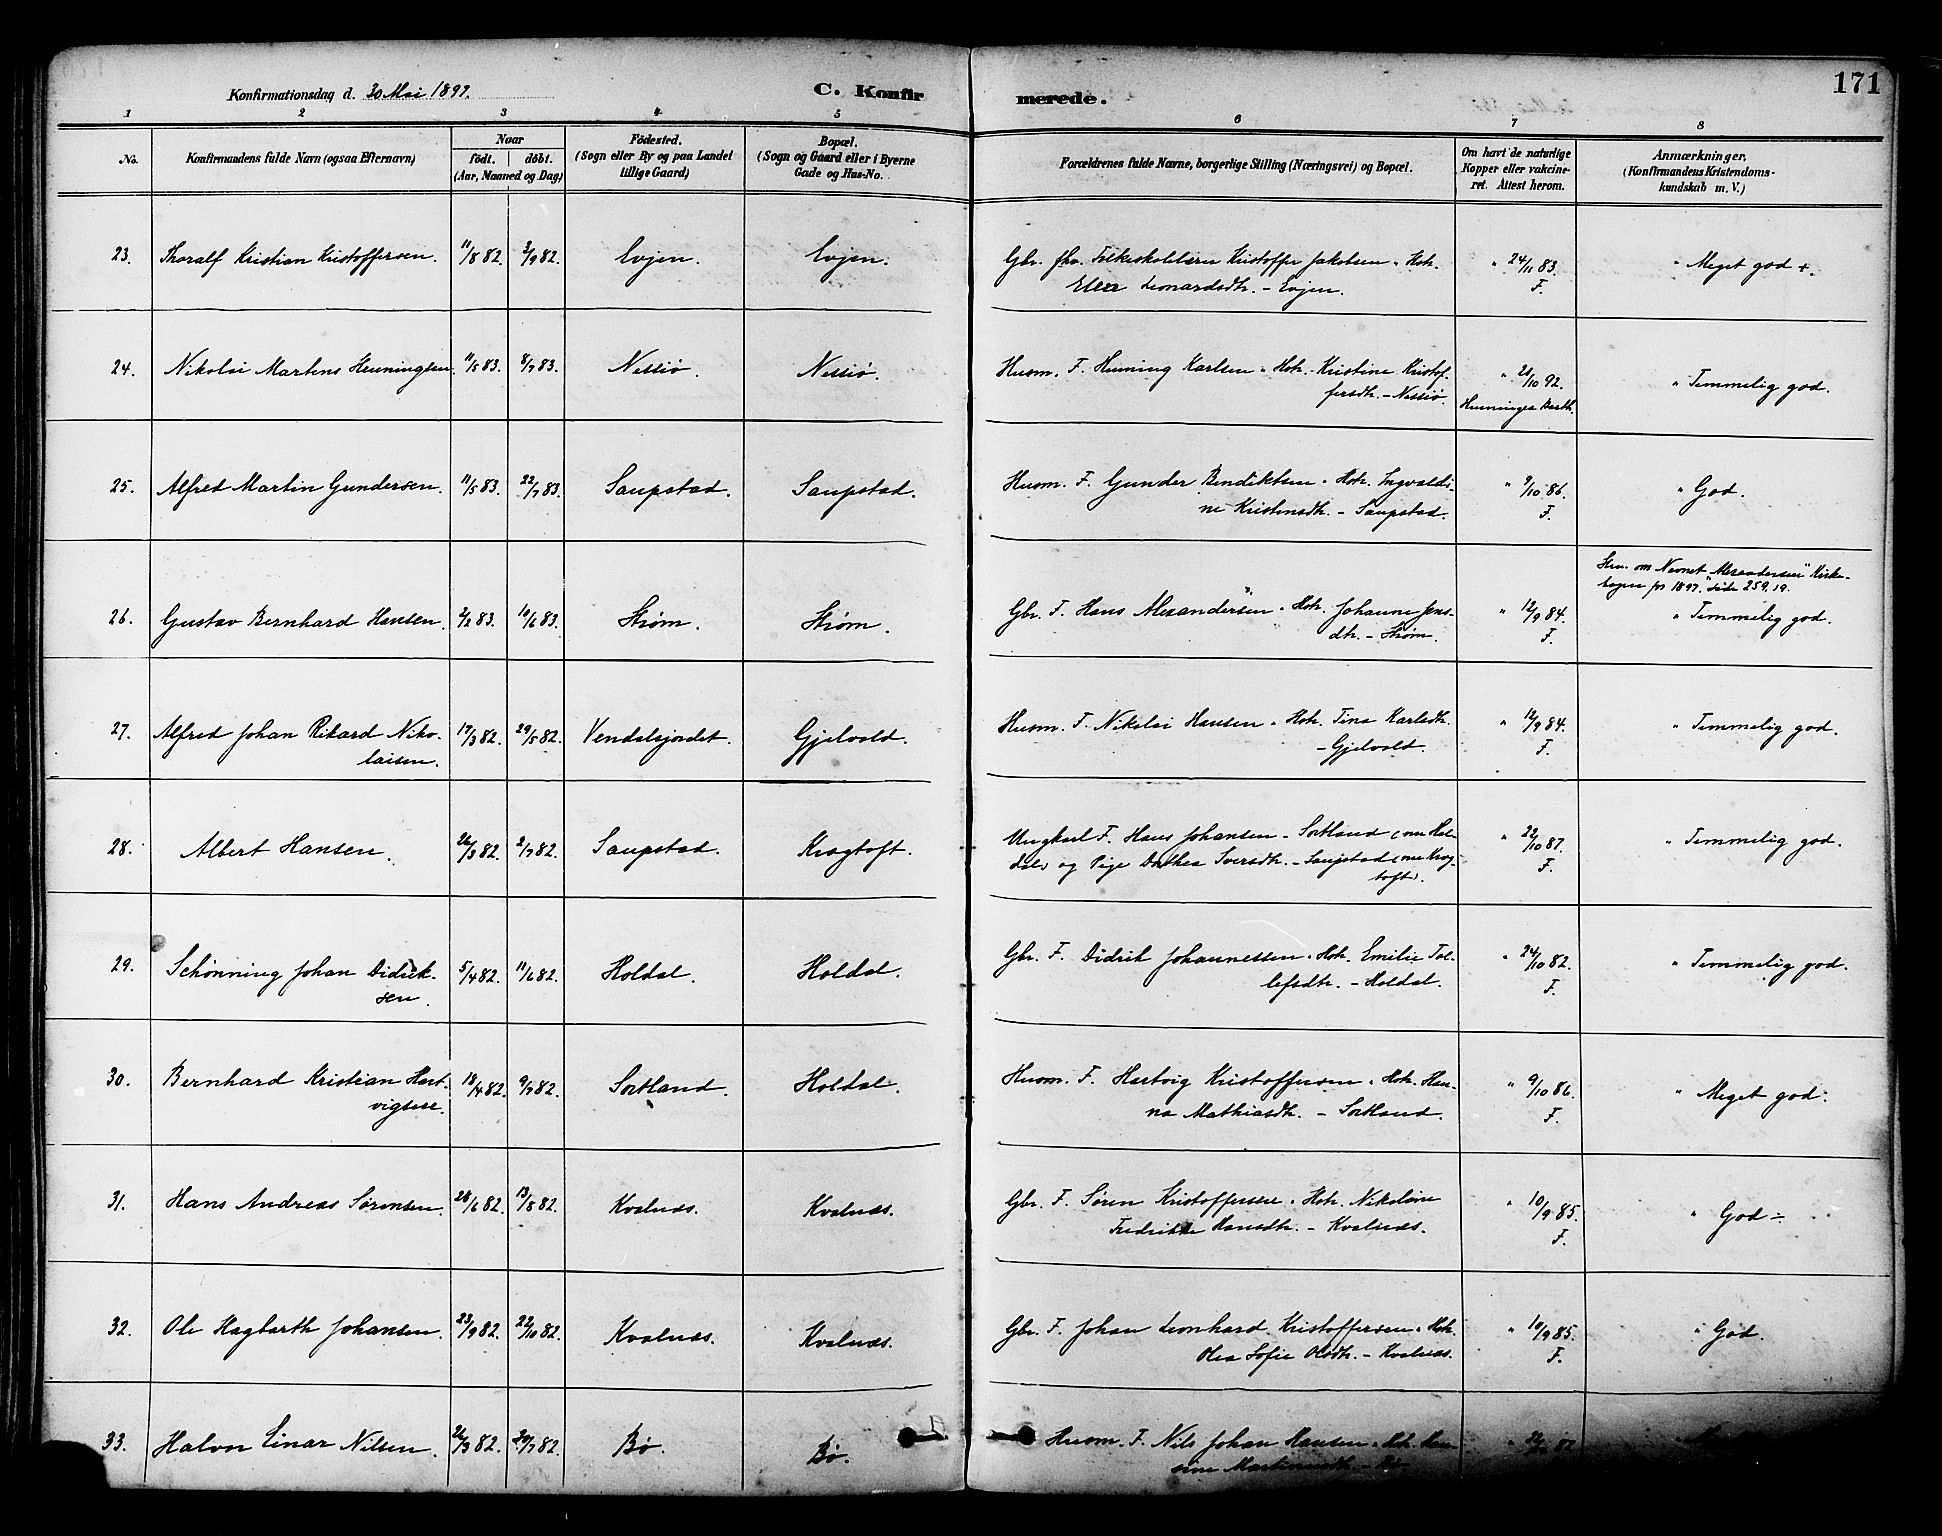 Konfirmationsdag d. 30 Mai 1897. C. Konfirmerede. 171
1 2 3 4 5 6 7 8
No. Konfirmandens fulde Navn (ogsaa Efternavn) Naar født. døbt. (Aar, Maaned og Dag) Fødested. (Sogn eller By og paa Landet tillige Gaard) Bopæl. (Sogn og Gaard eller i Byerne Gade og Hus-No. Forældrenes fulde Navne, borgerlige Stilling (Næringsvei) og Bopæl. Om havt de naturlige Kopper eller vakcineret. Attest herom. Anmærkninger. (Konfirmandens Kristendomskundskab m. V.)
23. Thoralf Kristian Kristoffersen. 11/8 82. 3/9 82. Evjen. Evjen. Gbr. fhv. Folkeskolelærer Kristoffer Jakobsen " Hstr.
Elen Leonardsdtr. – Evjen. " 24/11 83. F. " Meget god +.
24. Nikolai Martens Henningsen. 11/5 83. 8/7 83. Nessiø. Nessiø. Husm. F. Henning Karlsen " Hstr. Kristine Kristof-
fersdtr. – Nessiø. /10 92. " Temmelig god.
25. Alfred Martin Gundersen. 11/5 83. 22/7 83. Saupstad. Saupstad. Husm. F. Gunder Bendiktsen " Hstr. Ingvaldi-
ne Kristensdtr. – Saupstad. " 9/10 86. F. " God.
Skr. om Navnet "Alexandersen" Kirke-
bogen for 1897. Side 259, 19.
26. Gustav Bernhard Hansen. 2/2 83. 10/6 83. Strøm. Strøm. Gbr. F. Hans Alexandersen " Hstr. Johanne Jens-
dtr. – Strøm. " 12/9 84. F. " Temmelig god.
27. Alfred Johan Rikard Niko-
laisen. 17/3 82. 29/5 82. Vendalsjordet. Gjelvold. Husm. F. Nikolai Hansen " Hstr. Tina Karlsdtr.
– Gjelvold. " 12/9 84. F. " Temmelig god.
28. Albert Hansen. 26/3 82. 2/7 82. Saupstad. Kragtoft. Ungkarl F. Hans Johansen – Sortland (nu Hol-
dal) og Pige Dorthea Sversdtr. – Saupstad (nu Krag-
toft). " 22/10 87. F. " Temmelig god.
29. Schønning Johan Didrik-
sen. 5/4 82. 11/6 82. Holdal. Holdal. Gbr. F. Didrik Johannessen " Hstr. Emilie Tol-
lefsdtr. – Holdal. " 24/10 82. F. " Temmelig god.
30. Bernhard Kristian Hart-
vigsen. 18/4 82. 9/7 82. Sortland. Holdal. Husm. F. Hartvig Kristoffersen " Hstr. Han-
na Mathiasdtr. – Sortland. " 9/10 86. F. " Meget god.
31. Hans Andreas Sørensen. 28/6 82. 13/8 82. Kvalnæs. Kvalnæs. Gbr. F. Søren Kristoffersen " Hstr. Nikoline
Fredrikke Hansdtr. – Kvalnæs. " 10/9 85. F. " God ÷
32. Ole Hagbarth Johansen. 23/9 82. 22/10 82. Kvalnæs. Kvalnæs. Gbr. F. Johan Leonhard Kristoffersen " Hstr.
Olea Sofie Olsdtr. – Kvalnæs. " 10/9 85. F. " God.
33. Halvor Einar Nilsen. 26/3 82. /7 82. Bø. Bø. Husm. F. Nils Johan Hansen " Hstr. Han-
sine Martinusdtr. – Bø